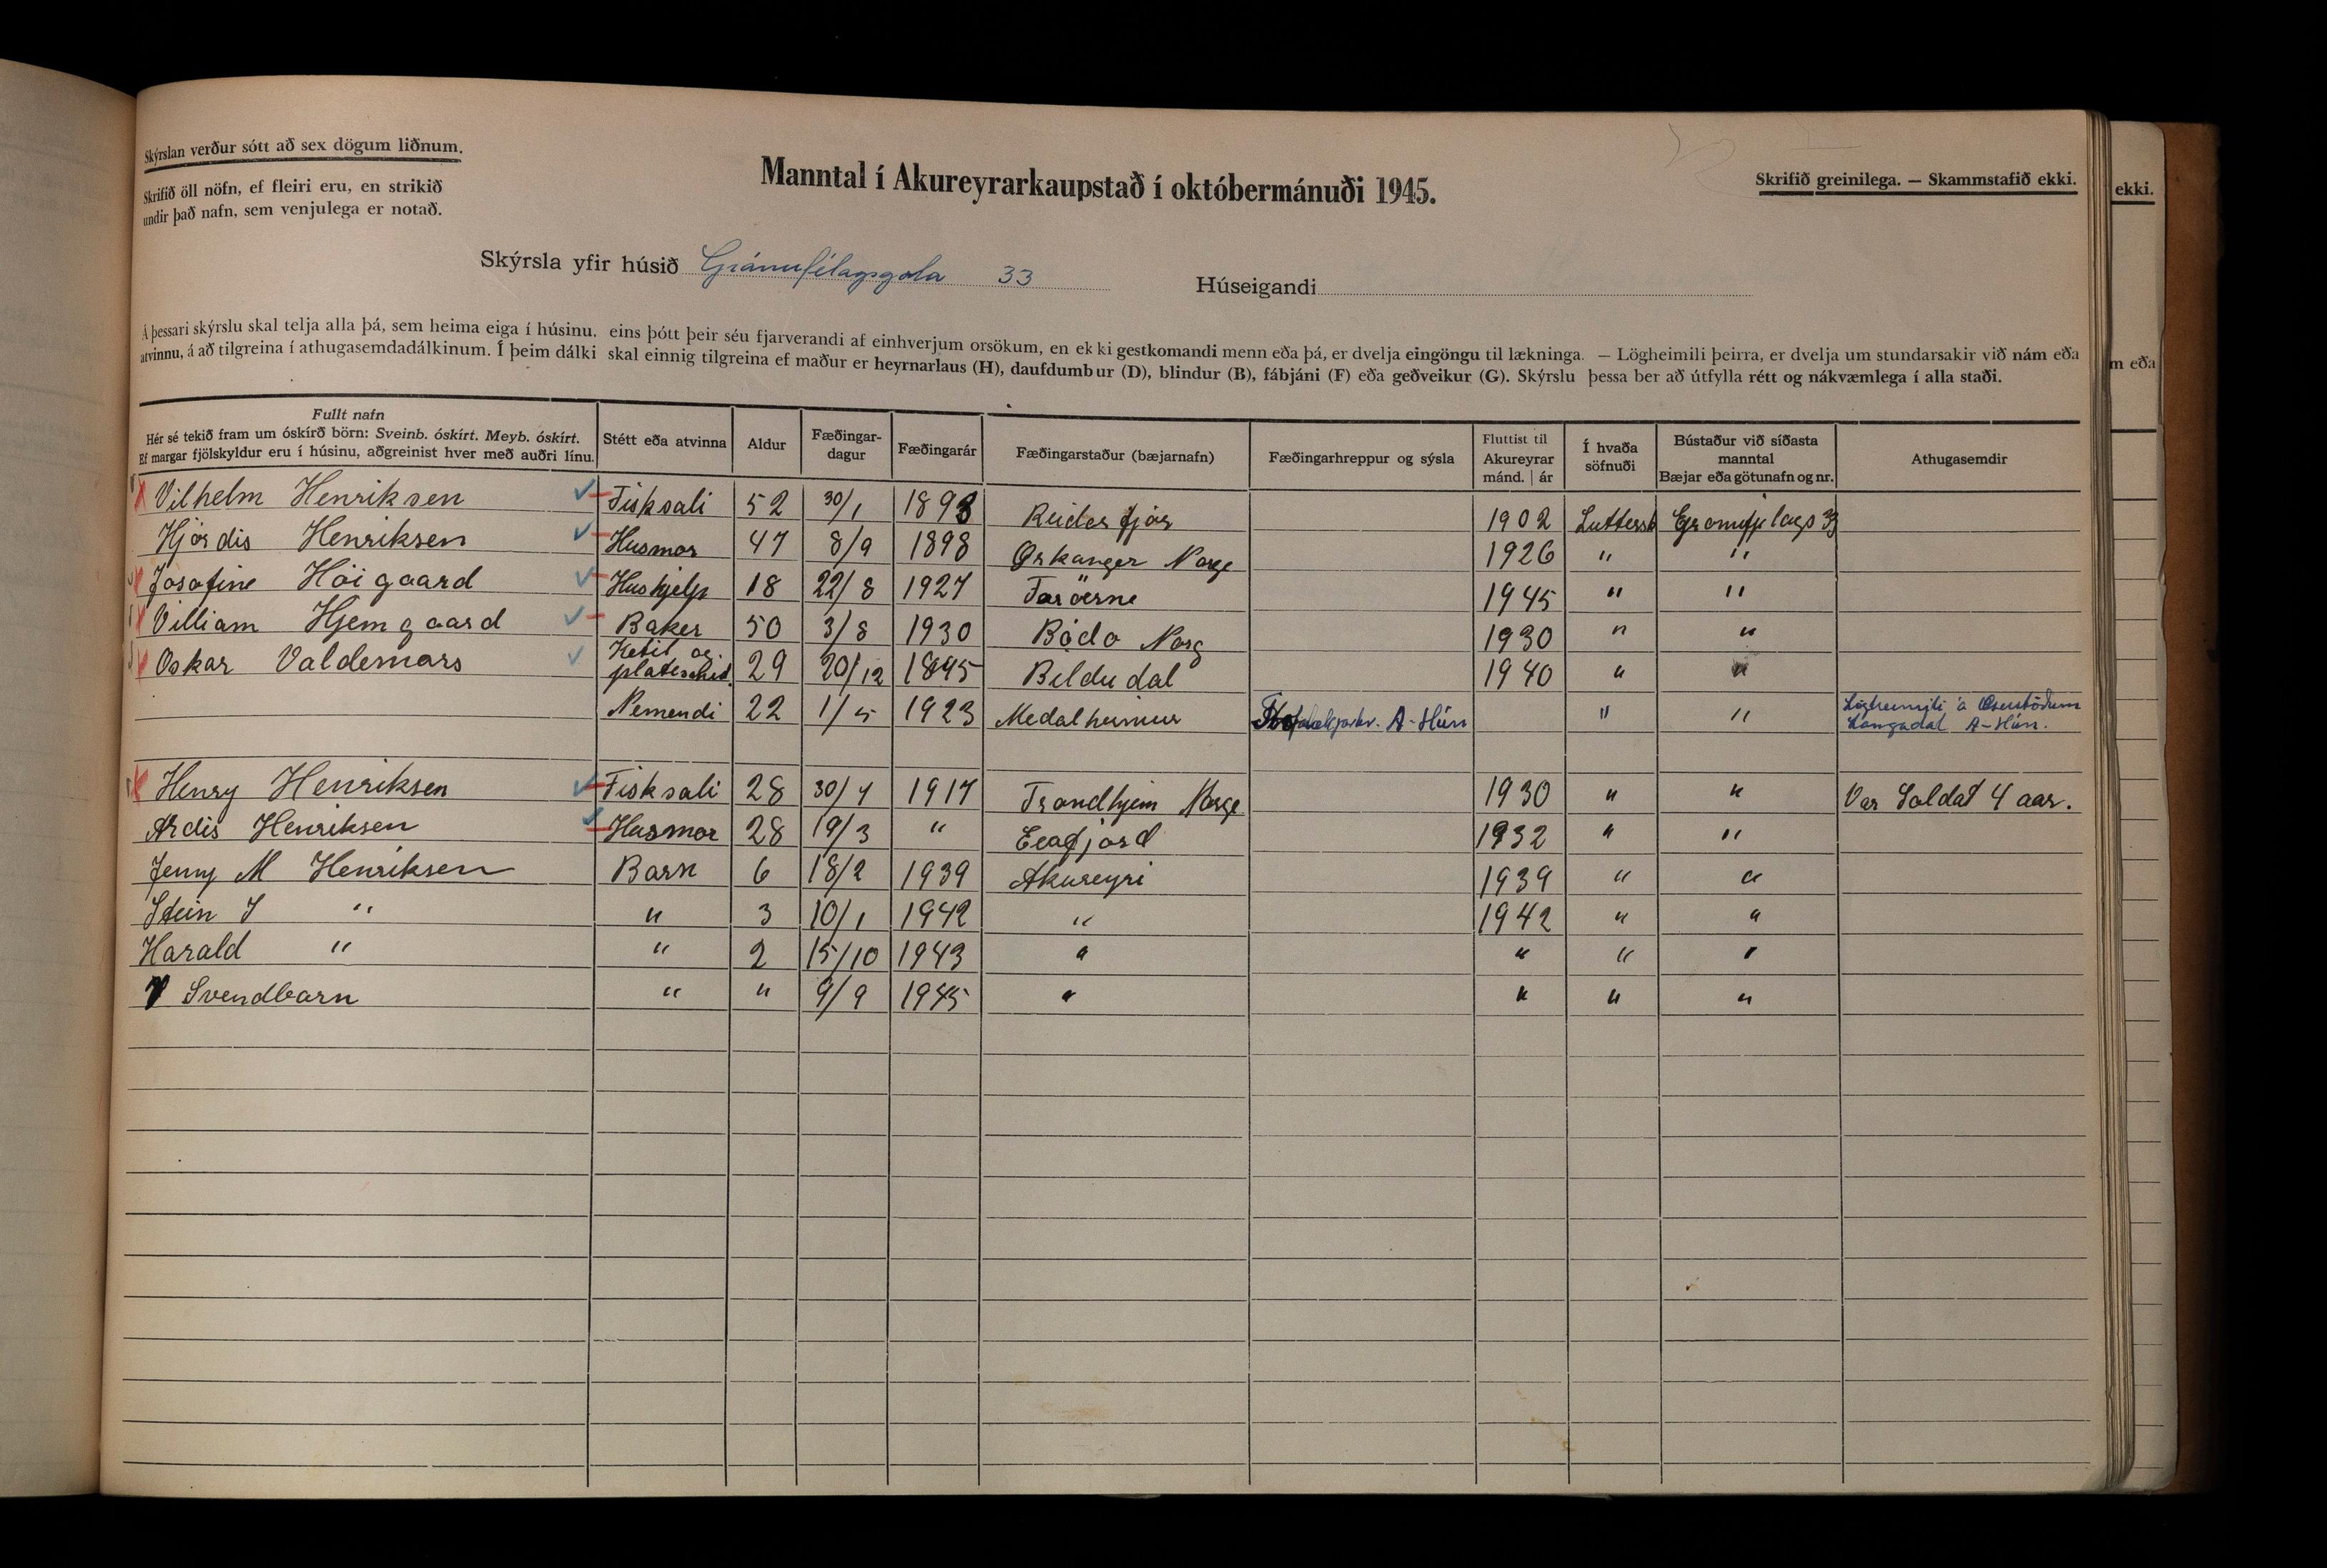 Skýrslan verður sótt að sex dögum liðnum.
Skrifið öll nöfn, ef fleiri eru, en strikið
undir það nafn, sem venjulega er notað.
Manntal í Akureyrarkaupstað í októbermánuði 1945.
Skrifið greinilega. — Skammstafið ekki.
ekki.
Skýrsla yfir húsið Gránufélagsgata 33
Húseigandi
Á þessari skýrslu skal telja alla þá, sem heima eiga í húsinu, eins þótt þeir séu fjarverandi af einhverjum orsökum, en ekki gestkomandi menn eða þá, er dvelja eingöngu til lækninga. — Lögheimili þeirra, er dvelja um stundarsakir við nám eða
atvinnu, á að tilgreina í athugasemdadálkinum. Í þeim dálki skal einnig tilgreina ef maður er heyrnarlaus (H), daufdumbur (D), blindur (B), fábjáni (F) eða geðveikur (G). Skýrslu þessa ber að útfylla rétt og nákvæmlega í alla staði.
m eða
Fullt nafn
Hér sé tekið fram um óskírð börn: Sveinb. óskírt. Meyb. óskírt.
Ef margar fjölskyldur eru í húsinu, aðgreinist hver með auðri línu.
Stétt eða atvinna
Aldur
Fæðingar-
dagur
Fæðingarár
Fæðingarstaður (bæjarnafn)
Fæðingarhreppur og sýsla
Fluttist til
Akureyrar
mánd. | ár
Í hvaða
söfnuði
Bústaður við síðasta
manntal
Bæjar eða götunafn og nr.
Athugasemdir
Vilhelm Henriksen Fisksali 52 30/1 1893 Reiderfjör 1902 Luttersk 33
Hjördis Henriksen Husmor 47 8/9 1898 Orkanger Norge 1926 " "
Josofine Höigaard Hushjelp 18 22/8 1927 Faröerne 1945 " "
Villiam Hjemgaard Baker 50 3/8 1930 Bödo Norg 1930 " "
Oskar Valdemars Ketil og
platesmid. 29 20/12 1895 Beldudal 1940 " "
Nemendi 22 1/5 1923 Medalheimur A-Hún " " Lögheimili á
Langadal A-Hún.
Henry Henriksen Fisksali 28 30/7 1917 Trondhjem Norge 1930 " " Var Soldat 4 aar.
Ardis Henriksen Husmor 28 19/3 " 1932 " "
Jenny M Henriksen Barn 6 18/2 1939 Akureyri 1939 " "
Stein J " " 3 10/1 1942 " 1942 " "
Harald " " 2 15/10 1943 " " " "
Svendbarn " " 9/9 1945 " " " "